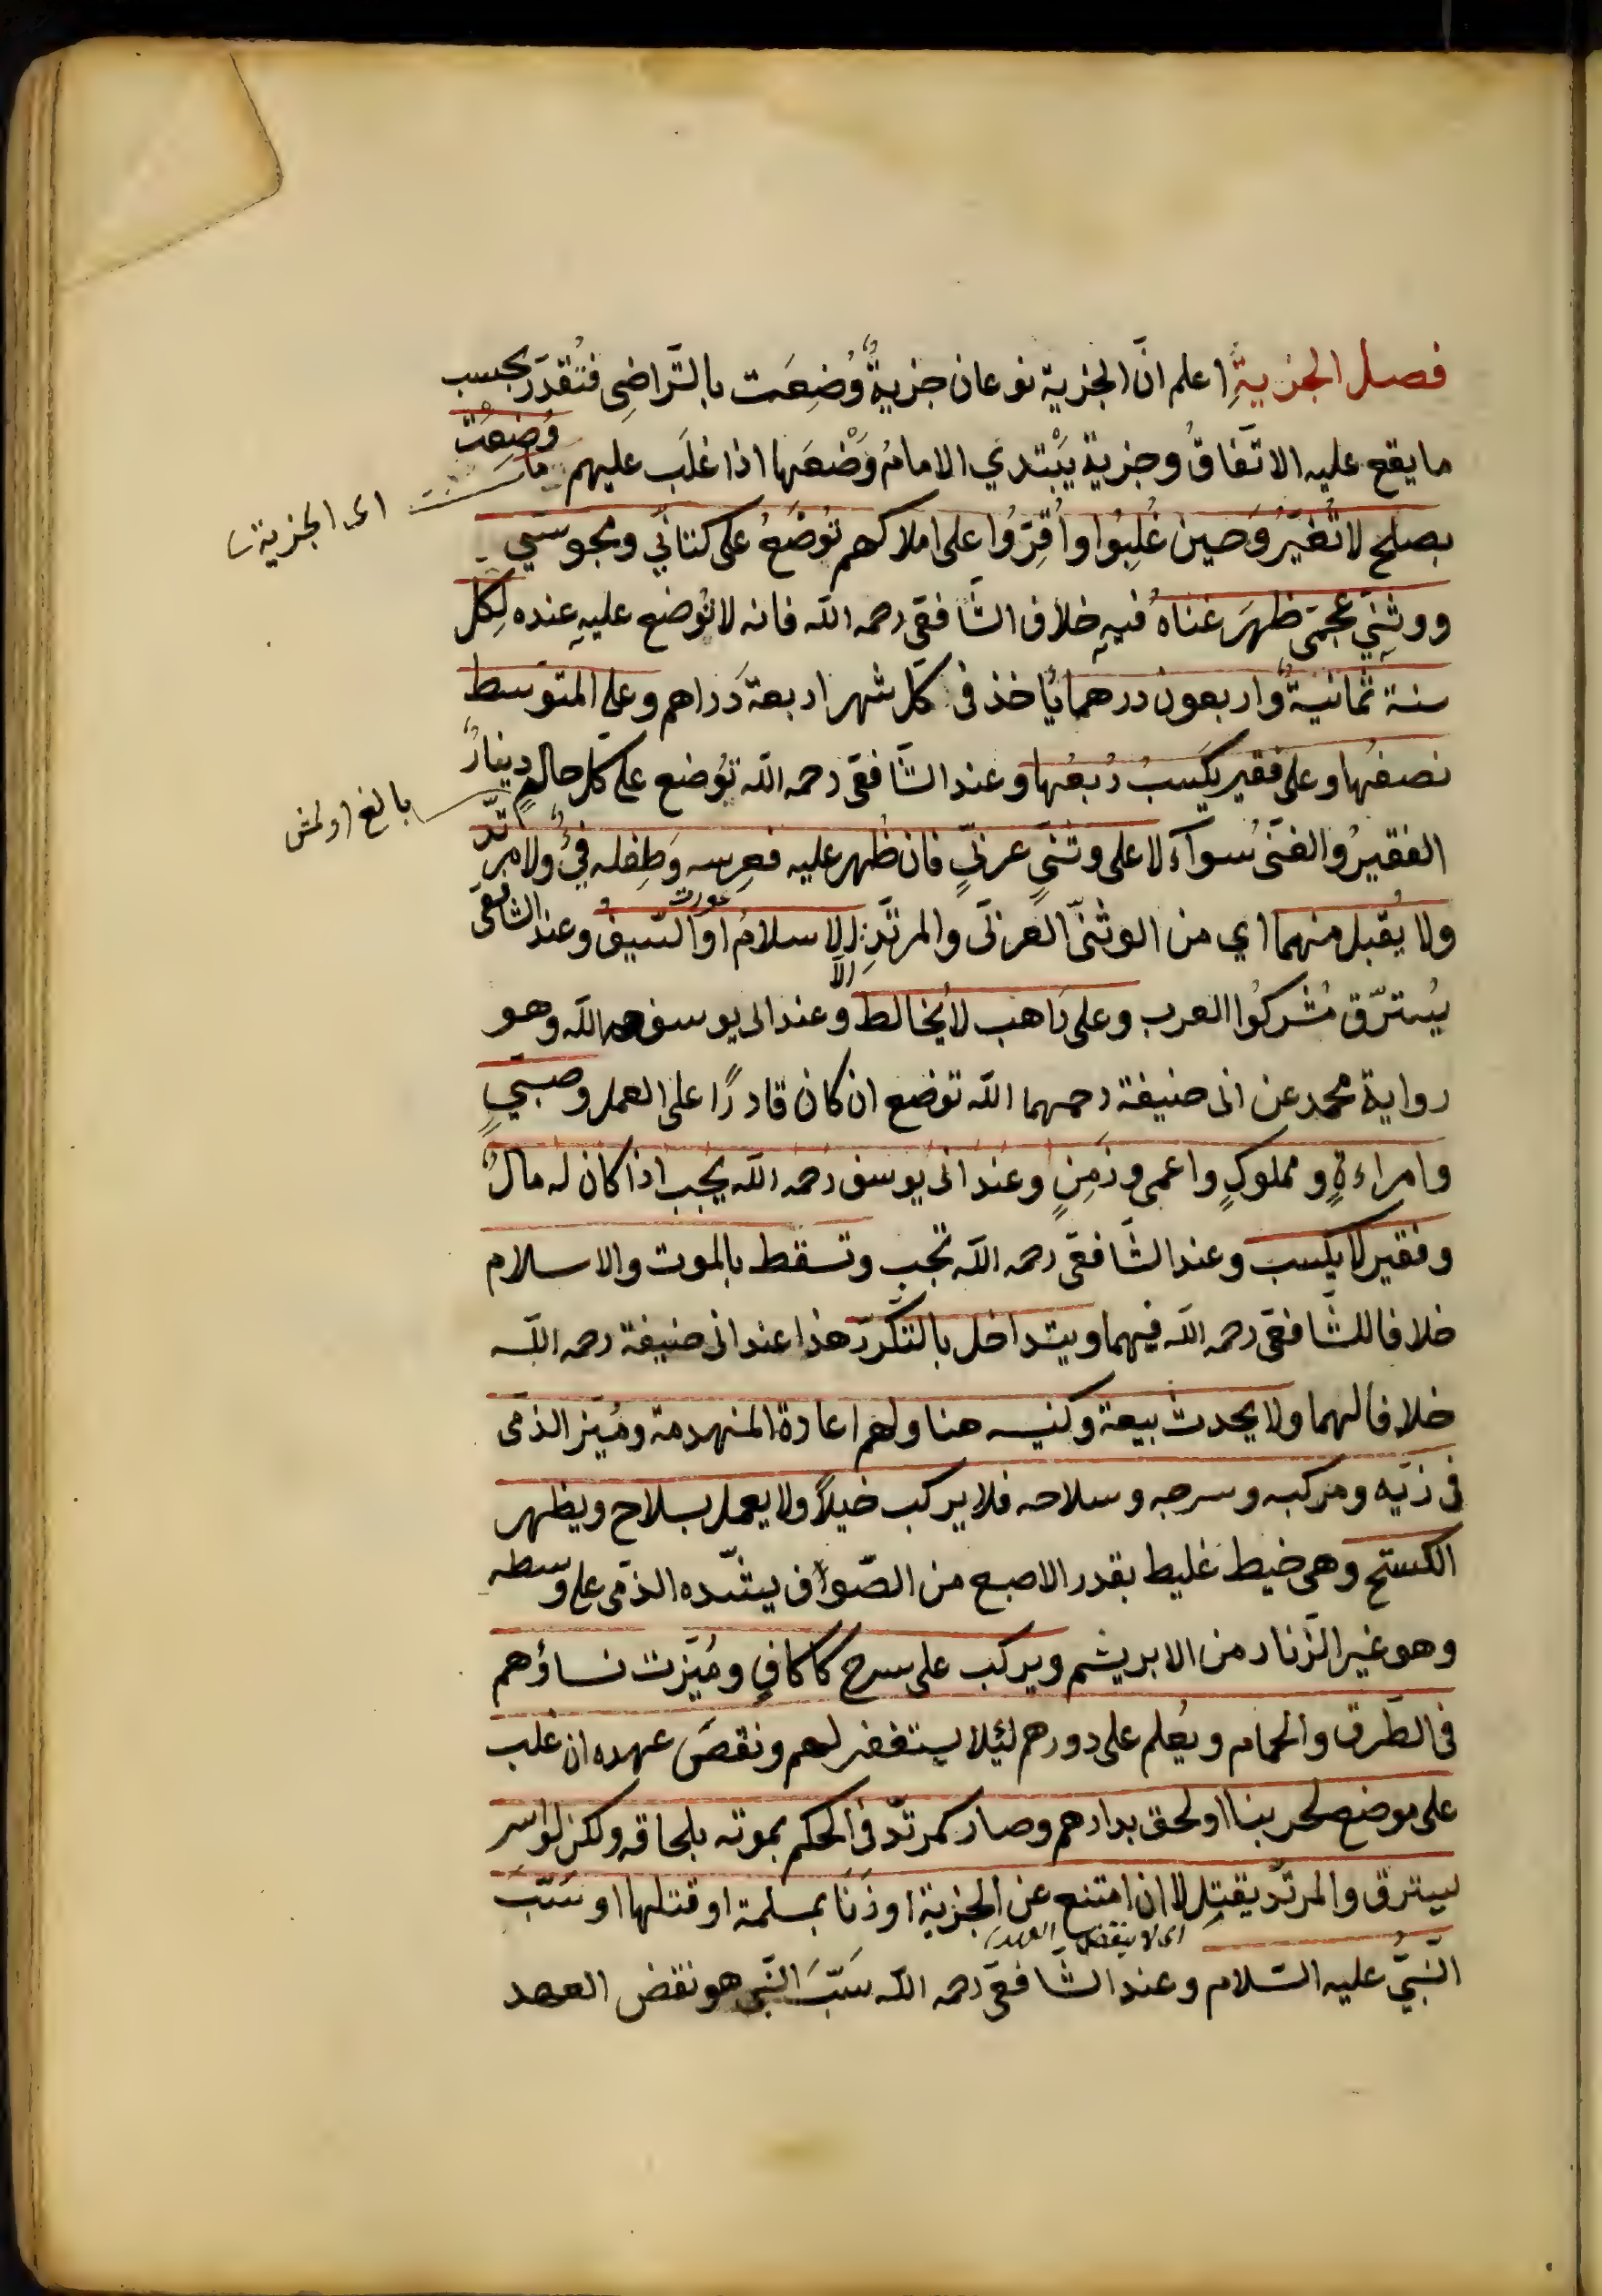 فصل الجزيةِ اعلم انّ الجزية نوعان جزيةٌ وُضِعَت بالتّراضِي فتُقدّر بحسب
ما يقع عليه الاتّفاقُ وجزية يَبْتدي الامامُ وَضْعَها اذا غلَب عليهم ما وُضِعَتْ
اى الجزية
بصلح لا تُغيّرُ وَحين غُلِبُوا واُقِرّوا على املاكهم تُوضَعُ على كتابي ومجوسي
ووثنِي عجمى ظهرَ غناهُ فيهِ خلاف الشّافعى رحمه الله فانه لا تُوضع عليهِ عنده لِكل
سنة ثمانيةٌ واربعون درهما يُاخذ فى كلّ شهر اربعة دَراهم وعلى المتوسط
نصفُها وعلى فقير يكسبُ رُبعُها وعند الشّافعى رحمه الله تُوضع على كلّ حالمٍ دينارٌ
بالغ اولمش
الفقيرُ والغنىُ سوآء لا على وثنىٍ عربىٍّ فان ظُهر عليه فعِرسه وَطِفله فيٌ ولا مرتدّ
عورت
ولا يُقبل منهما اي من الوثنىّ العربىّ والمرتدِّ الا الاسلامُ او السّيفُ وعند الشافعى
يُسترّق مُشركُوا العرب وعلى رَاهب لا يُخالط وعند ابى يوسف رحمه الله وهو
رواية محمد عن ابى حنيفة رحمهما الله توضع ان كان قادرًا على العمل وصبيٍ
وامراءةٍ ومملوكٍ واعمى وزَمِنٍ وعند ابى يوسف رحمه الله يجب اذا كان له مالٌ
وفقير لا يكسب وعند الشّافعى رحمه الله تجب وتسقط بالموت والاسلام
خلافا للشّافعى رحمه الله فيهما ويتداخل بالتكرّر هذا عند ابى حنيفة رحمه الله
خلافا لهما ولا يحدث بيعة وكنيسه هنا ولهم اعادة المنهدمة ومُيّز الذمى
فى زيّه ومركبه وسرجه وسلاحه فلا يركب خيلًا ولا يعمل بسلاح ويظهر
الكستج وهى خيط غليط بقدر الاصبع من الصّواف يشدّه الذمى على وسطه
وهو غير الزّنار من الابريشم ويركب على سرج كاكافٍ ومُيّزت نساؤهم
فى الطّرق والحمام ويُعلم على دورهم لئلا يستغفر لهم ونقضَ عهده ان غلب
على موضع لحربنا او لحق بدارهم وصار كمرتدّ فى الحكم بموته بلحاقه ولكن لو اسر
يسترق والمرتدّ يقتل لا ان امتنع عن الجزية او زَنَا بمسلمة او قتلها او سَبّ
اى لا ينقض العهد
النّبىُّ عليه السّلام وعند الشّافعىّ رحمه الله سَبّ النّبى هو نقض العهد